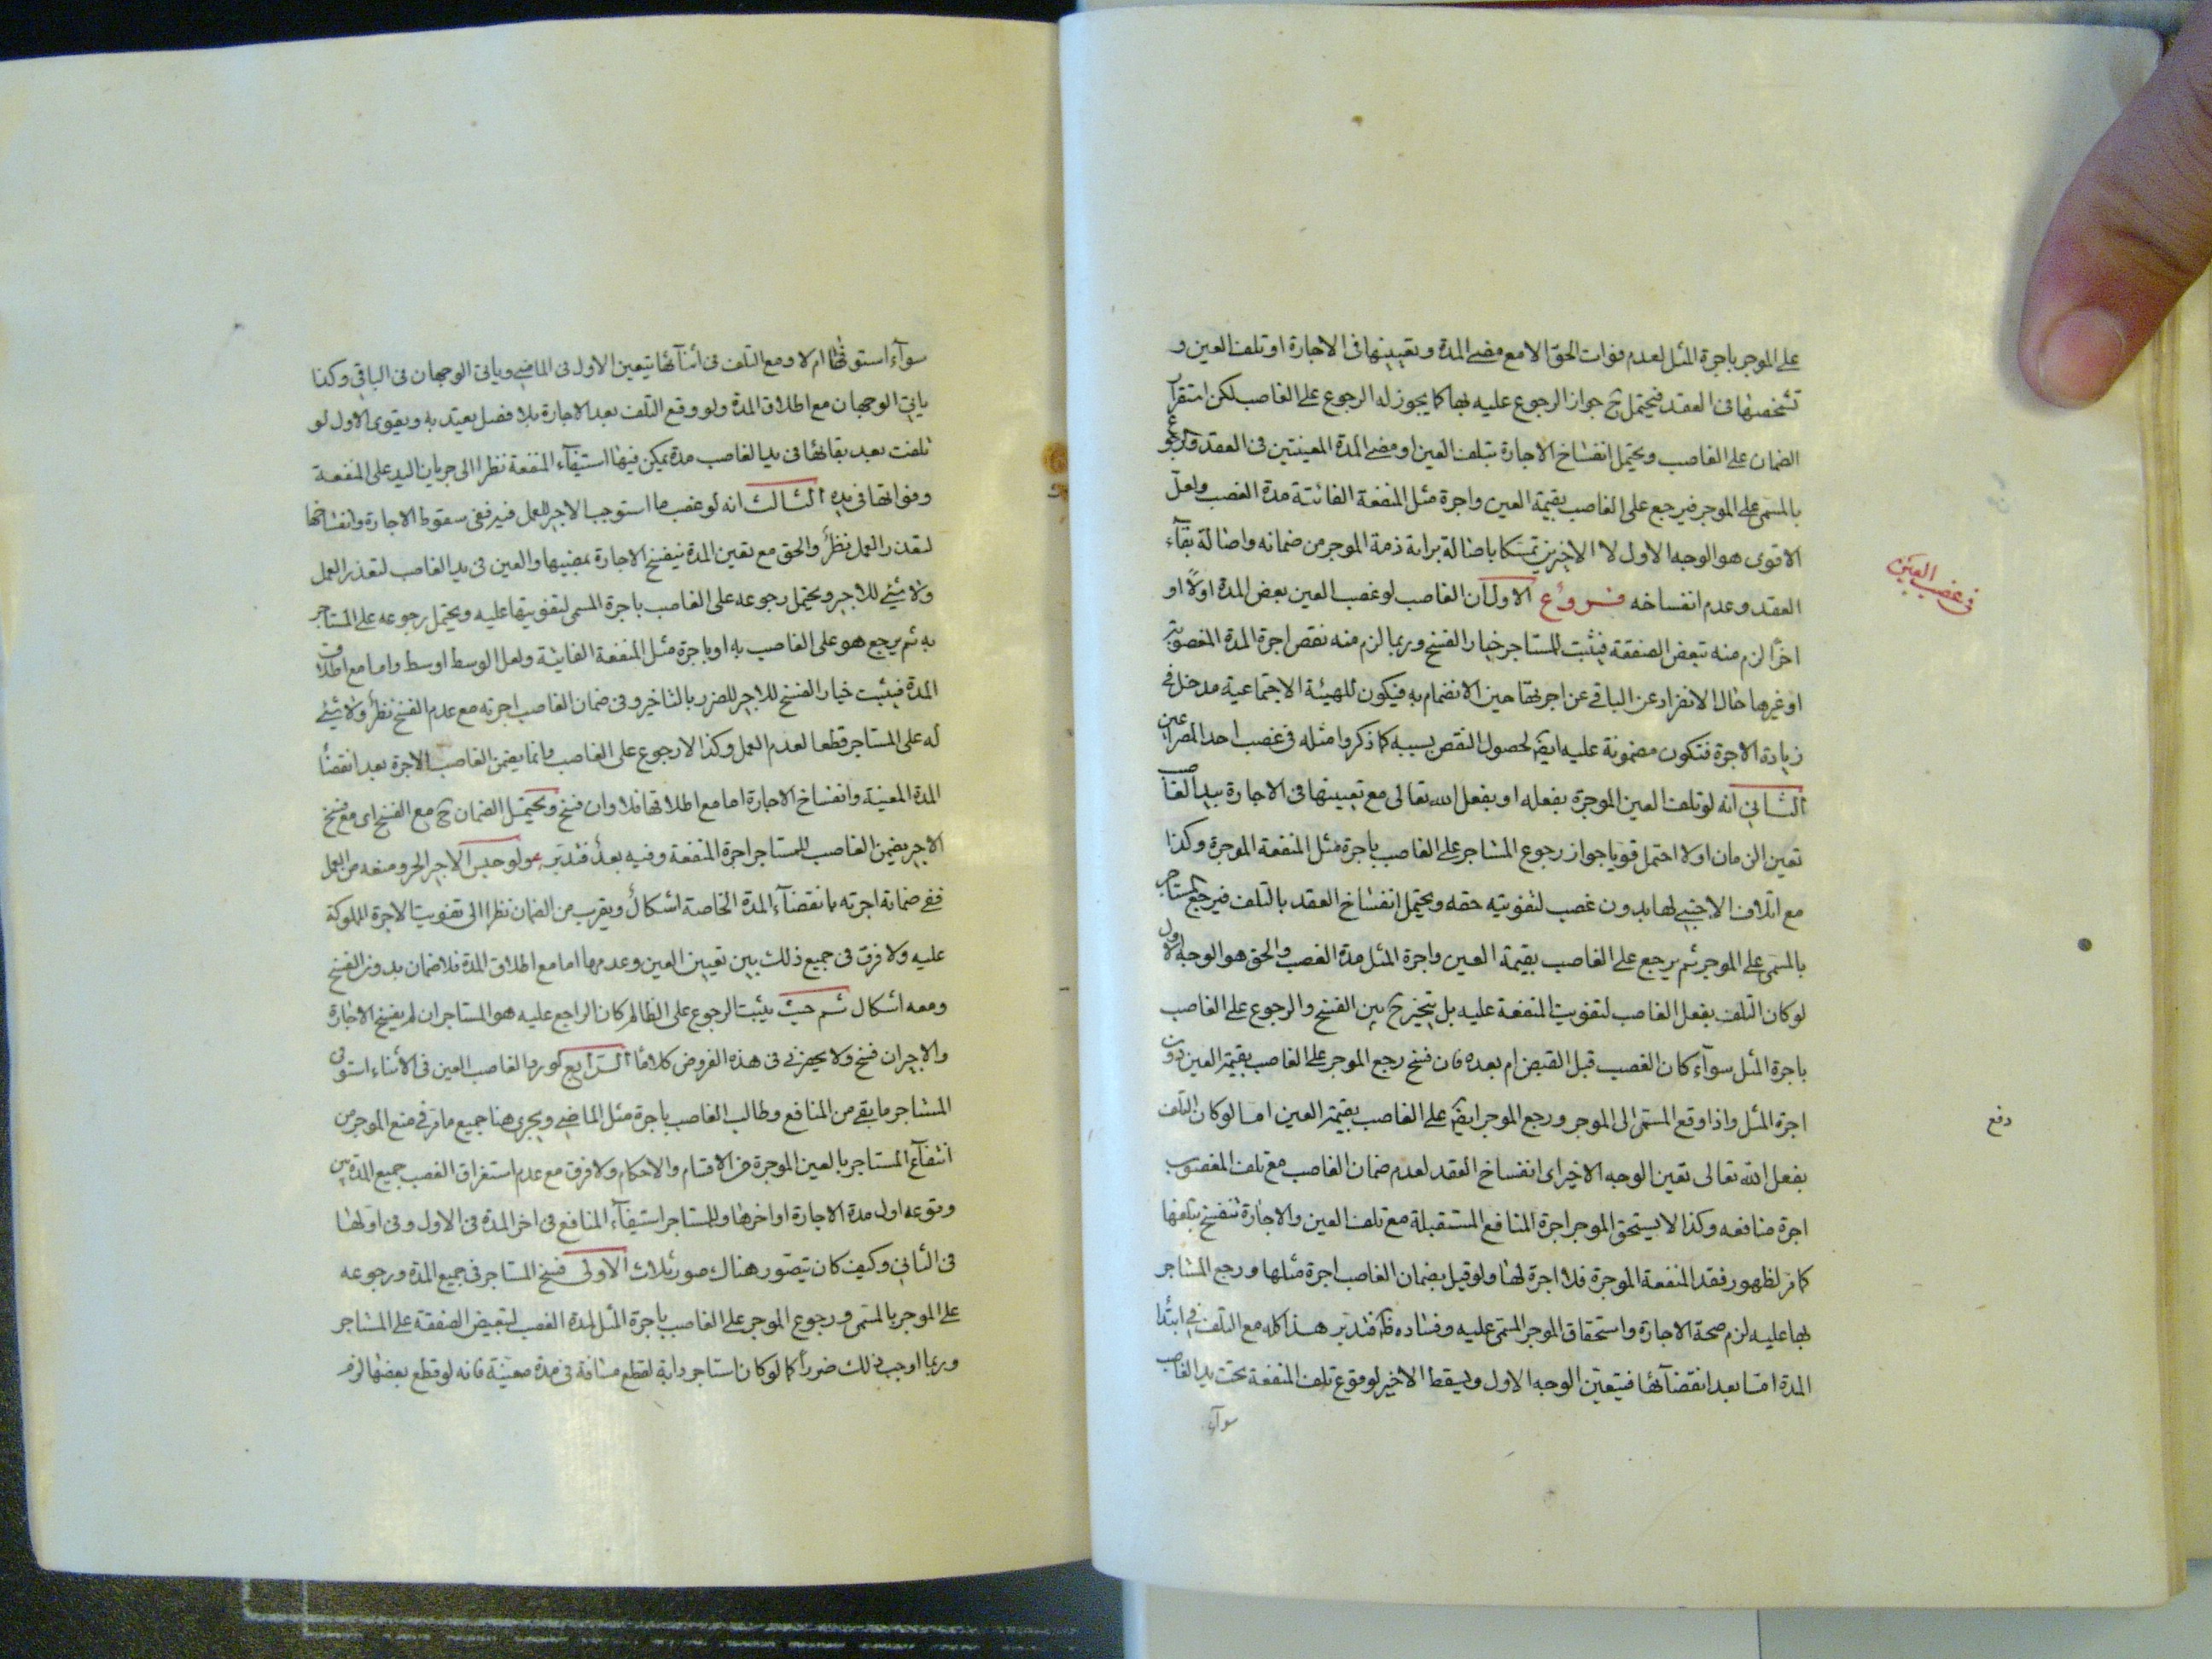 على الموجر باجرة المثل لعدم فوات الحق الا مع مضى المدة وتعيينها فى الاجارة او تلف العين و
تشخصها فى العقد فيحتمل ح جواز الرجوع عليه بها كما يجوز له الرجوع على الغاصب لكن استقرار
الضمان على الغاصب ويحتمل انفساخ الاجارة بتلف العين او مضى المدة المعينتين فى العقد والرجوع
بالمسمى على الموجر فيرجع على الغاصب بقيمة العين واجرة مثل المنفعة الفائتة مدة الغصب ولعل
الاقوى هو الوجه الاول لا الاخيرين تمسكا باصالة براءة ذمة الموجر من ضمانه واصالة بقآء
العقد وعدم انفساخه فروع الاول ان الغاصب لو غصب العين بعض المدة اولًا او
فى غصب العين
اخرًا لزم منه تبعض الصفقة فيثبت للمستاجر خيار الفسخ وربما لزم منه نقص اجرة المدة المغصوبة
او غيرها حال الانفراد عن الباقى عن اجرتها حين الانضمام به فيكون للهيئة الاجتماعية مدخل فى
زيادة الاجرة فتكون مضمونة عليه ايضً لحصول النقص بسببه كما ذكروا مثله فى غصب احد المصراعين
الثانى انه لو تلف العين الموجرة بفعله او بفعل الله تعالى مع تعيينها فى الاجارة بيد الغاصب
تعين الزمان او لا احتمل قويا جواز رجوع المستاجر على الغاصب باجرة مثل المنفعة الموجرة وكذا
مع اتلاف الاجنبى لها بدون غصب لتفويته حقه ويحتمل انفساخ العقد بالتلف فيرجع المستاجر
بالمسمى على الموجر ثم يرجع على الغاصب بقيمة العين واجرة المثل مدة الغصب والحق هو الوجه الاول
لو كان التلف بفعل الغاصب لتفويت المنفعة عليه بل يتخير ح بين الفسخ والرجوع على الغاصب
باجرة المثل سوآء كان الغصب قبل القبض ام بعده فان فسخ رجع الموجر على الغاصب بقيمة العين دون
اجرة المثل واذا وقع المسمى الى الموجر ورجع الموجر ايضً على الغاصب بقيمة العين امالو كان التلف
دفع
بفعل الله تعالى تعين الوجه الاخير اى انفساخ العقد لعدم ضمان الغاصب مع تلف المغصوب
اجرة منافعه وكذا لا يستحق الموجر اجرة المنافع المستقبلة مع تلف العين والاجارة تنفسخ بتلفها
كما مر لظهور فقد المنفعة الموجرة فلا اجرة لها ولو قيل بضمان الغاصب اجرة مثلها ورجع المستاجر
بها عليه لزم صحة الاجارة واستحقاق الموجر المسمى عليه وفساده ظ فتدبر هذا كله مع التلف فى ابتدا
المدة امّا بعد انقضآئها فيتعين الوجه الاول ويسقط الاخير لوقوع تلف المنفعة تحت يد الغاصب
سوآء
سوآء استوفها ام لا ومع التلف فى أثنآئها يتعين الاول فى الماضى وياتى الوجهان فى الباقى وكذا
ياتى الوجهان مع اطلاق المدة ولو وقع التلف بعد الاجارة بلا فصل يعتد به ويقوى الاول لو
تلفت بعد بقائها فى يد الغاصب مدة يمكن فيها استيفآء المنفعة نظرا الى جريان اليد على المنفعة
وفواتها فى يده الثالث انه لو غصب ما استوجب الاجير للعمل فيه ففى سقوط الاجارة وانفساخها
لتعذر العمل نظرٌ والحق مع تعين المدة تنفسخ الاجارة بمضيها والعين فى يد الغاصب لتعذر العمل
ولا شيئ للاجير ويحتمل رجوعه على الغاصب باجرة المسمى لتفويتها عليه ويحتمل رجوعه على المستاجر
به ثم يرجع هو على الغاصب به او باجرة مثل المنفعة الفائتة ولعل الوسط اوسط واما مع اطلاق
المدة فيثبت خيار الفسخ للاجير للضرر بالتاخير وفى ضمان الغاصب اجرته مع عدم الفسخ نظرٌ ولا شيئ
له على المستاجر قطعا لعدم العمل وكذا لا رجوع على الغاصب وانما يضمن الغاصب الاجرة بعد انقضآ
المدة المعينة وانفساخ الاجارة اما مع اطلاقها فلا وان فسخ ويحتمل الضمان ح مع الفسخ اى مع فسخ
الاجير يضمن الغاصب للمستاجر اجرة المنفعة وفيه بعدٌ فتدبر ولو حبس الاجير الحر ومنعه من العمل
ففى ضمانة اجرته بانقضآء المدة الخاصة اشكالٌ ويقرب من الضمان نظرا الى تفويت الاجرة المملوكة
عليه ولا فرق فى جميع ذلك بين تعيين العين وعدمها اما مع اطلاق المدة فلا ضمان بدون الفسخ
ومعه اشكال ثم حيث يثبت الرجوع على الظالم كان الراجع عليه هو المستاجر ان لم يفسخ الاجارة
والاجير ان فسخ ولا يحضرنى فى هذه الفروض كلامًا الرابع لو رد الغاصب العين فى الأثناء استوفى
المستاجر ما بقى من المنافع وطالب الغاصب باجرة مثل الماضى ويجرى هنا جميع ما مر فى منع الموجر من
انتفآع المستاجر بالعين الموجرة من الاقسام والاحكام ولا فرق مع عدم استغراق الغصب جميع المدة بين
وقوعه اول مدة الاجارة او اخرها وللمستاجر استيفآء المنافع فى اخر المدة فى الاول وفى اولها
فى الثانى وكيف كان يتصور هناك صور ثلاث الاولى فسخ المستاجر فى جميع المدة ورجوعه
على الموجر بالمسمى ورجوع الموجر على الغاصب باجرة المثل لمدة الغصب لتبعيض الصفقة على المستاجر
وربما اوجب ذلك ضررًا كما لو كان استاجر دابة لقطع مسافة فى مدة معيّنة فانه لو قطع بعضها لزم